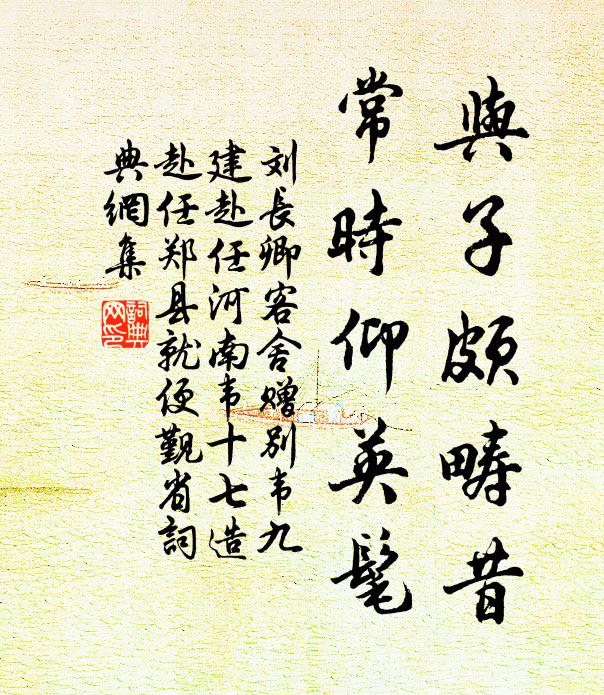 與子頗疇昔
常時仰英髦
刘長卿客舍赠别韦九
建赴任河南韦十七造
赴任郑县就便覲省詞
典網集
詞典
网印